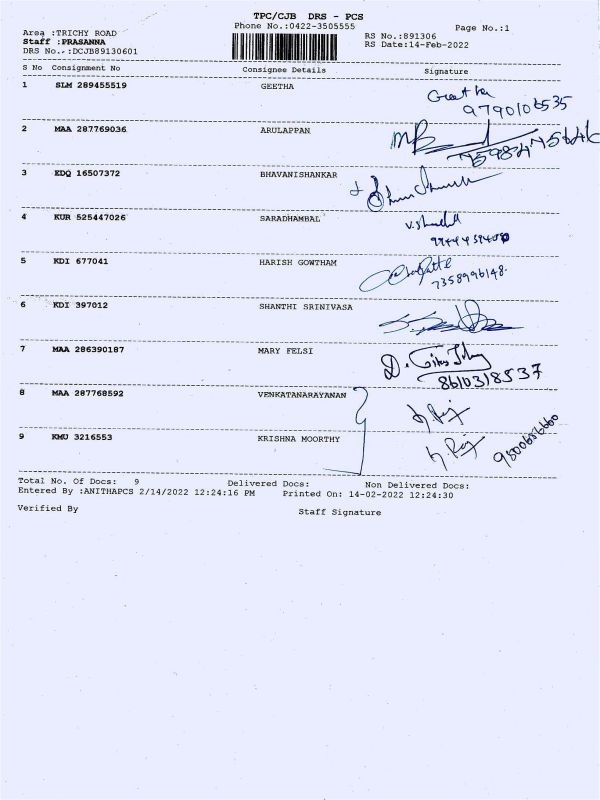 TPC/CJB DRS - PCS
Phone No.:0422-3505555
Page No.:1
Area :TRICHY ROAD
Staff :PRASANNA
DRS No.:DCJB89130601
RS No.:891306
RS Date:14-Feb-2022
S No Consignment No Consignee Details Signature
1 SLM 289455519 GEETHA Geetha
9790106535
2 MAA 287769036 ARULAPPAN
3 EDQ 16507372 BHAVANISHANKAR
4 KUR 525447026 SARADHAMBAL
5 KDI 677041 HARISH GOWTHAM
7358996148
6 KDI 397012 SHANTHI SRINIVASA
7 MAA 286390187 MARY FELSI
8610318537
8 MAA 287768592 VENKATANARAYANAN
9 KMU 3216553 KRISHNA MOORTHY
Total No. Of Docs: 9 Delivered Docs: Non Delivered Docs:
Entered By :ANITHAPCS 2/14/2022 12:24:16 PM Printed On: 14-02-2022 12:24:30
Verified By Staff Signature